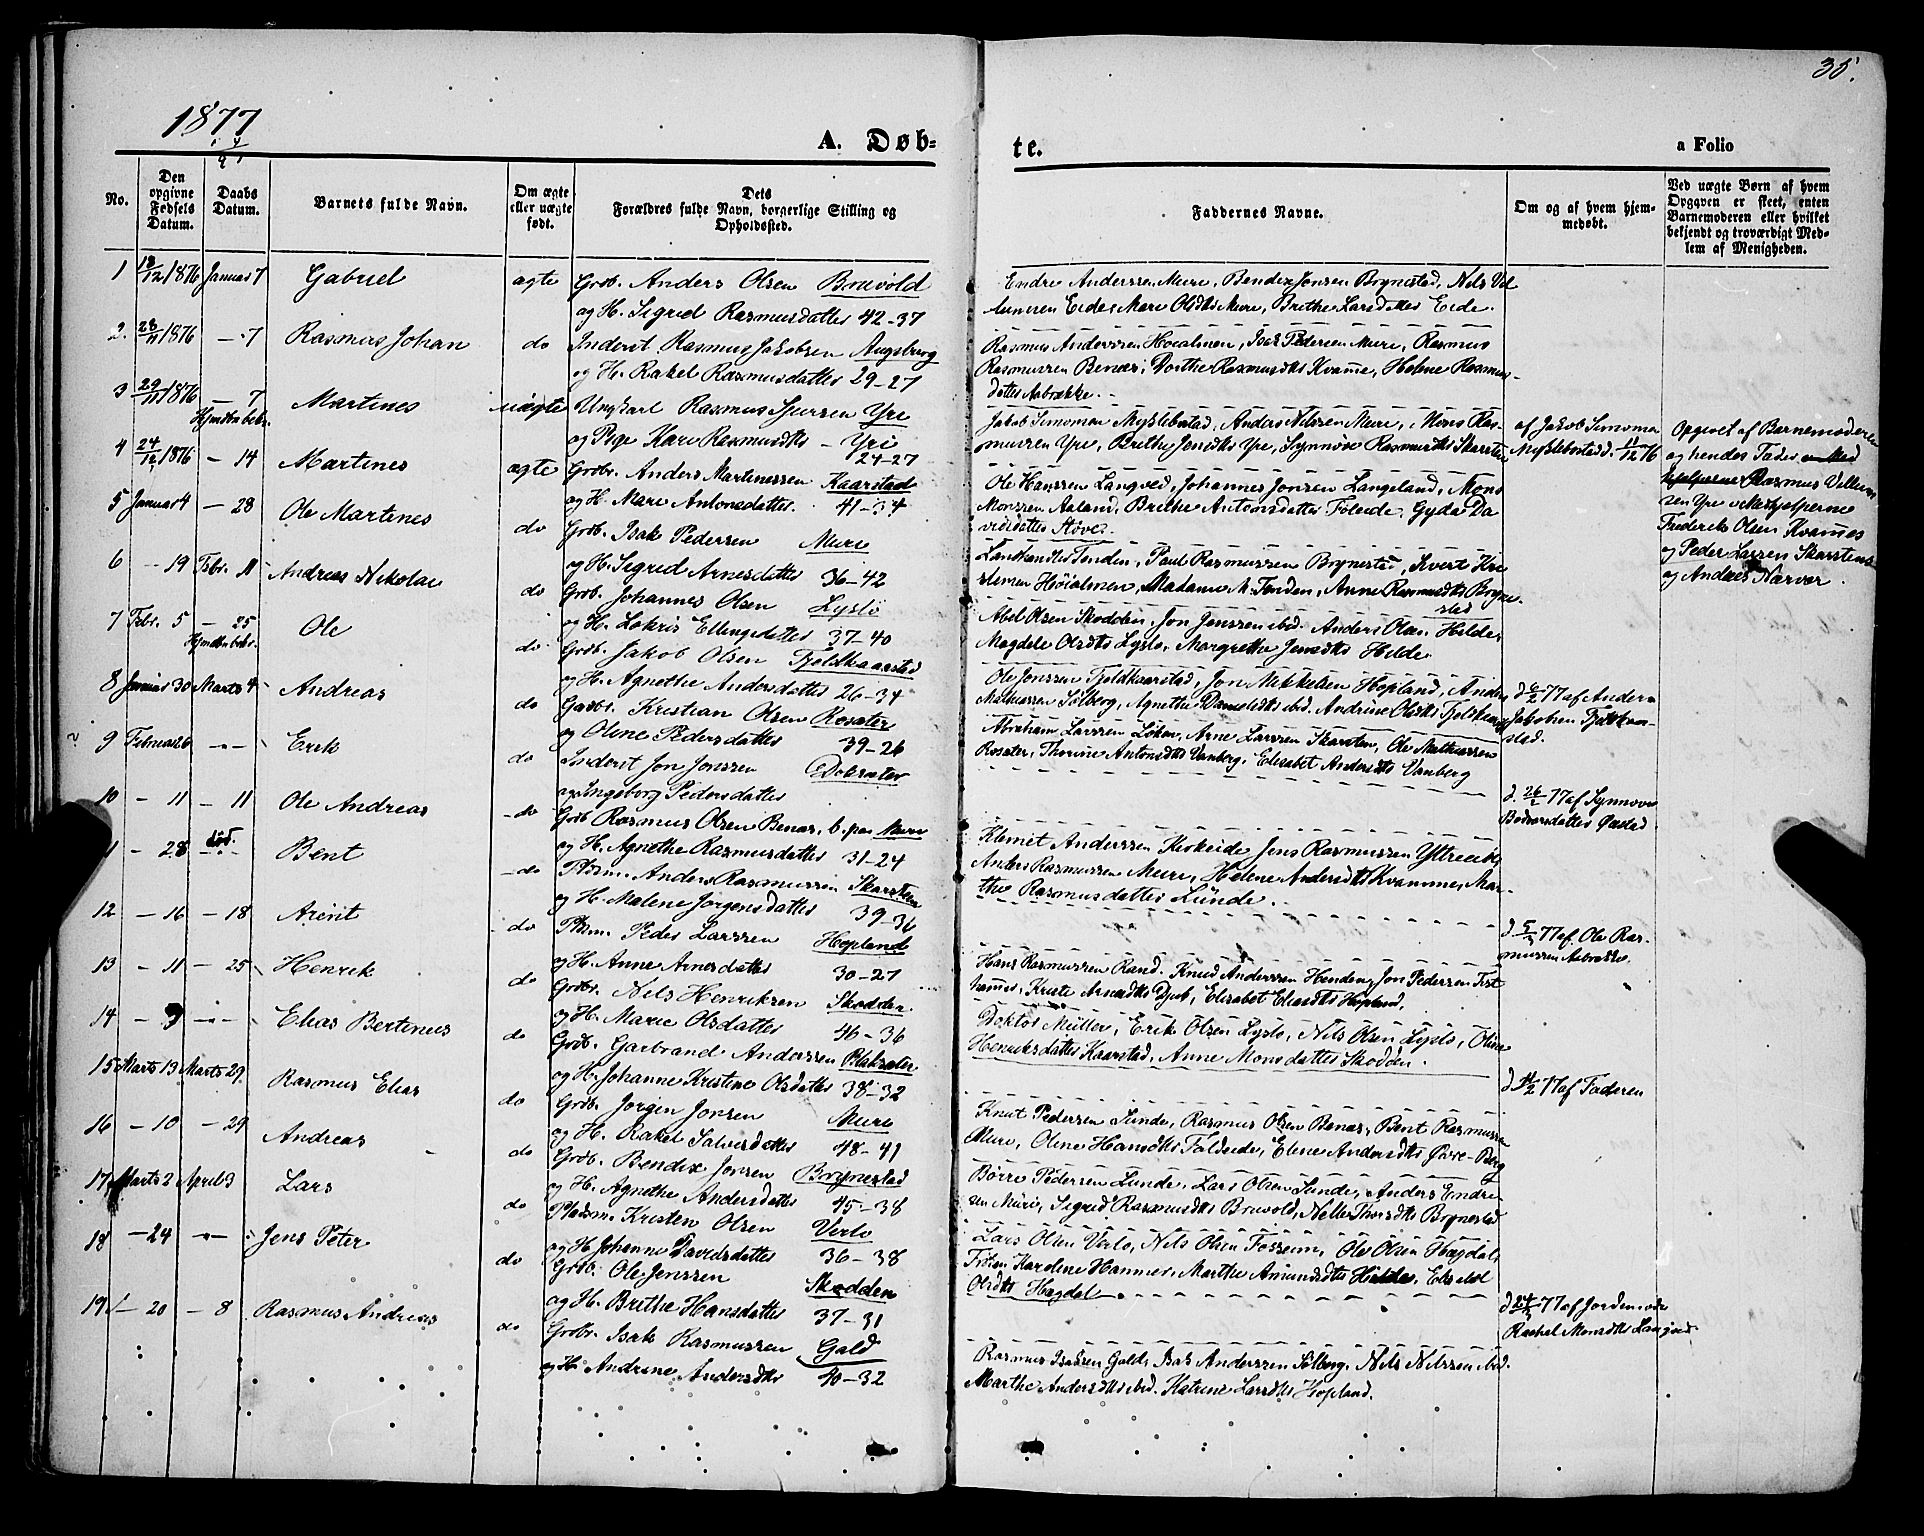 35.
1877
A. Døb-
te.
a Folio
No.
Den opgivne Fødsels Datum.
Daabs Datum.
Barnets fulde Navn.
Om ægte eller uægte født.
Dets Forældres fulde Navn, borgerlige Stilling og Opholdssted.
Faddernes Navne.
Om og af hvem hjemmedøbt.
Ved uægte Børn af hvem Opgaven er skeet, enten Barnemoderen eller hvilket bekjendt og troværdigt Medlem af Menigheden.
1 18/12 1876 Januar 7 Gabriel ægte Grdb. Anders Olsen Bruvold
og H. Sigrid Rasmusdatter 42-37
Endre Anderssen Mure, Bendix Jonsen Brynestad, Nils
Eide, Mari Olsdtr Mure, Brithe Larsdatter Eide.
2. 28/11 1876 - 7 Rasmus Johan do Inderst Rasmus Jakobsen Augsburg
og H. Rakel Rasmusdatter 29-27
Rasmus Anderssen Hoealmen, Isak Pedersen Mure, Rasmus
Rasmussen Benæs, Dorthe Rasmusdtr Kvamme, Helene Rasmus-
datter Aabrække.
3 29/11 1876 - 7 Hjmdbn bekr. Martines uægte Ungkarl Rasmus Sjursen Yri
og Pige Kari Rasmusdtr - Yri 24-27
Jakob Simonsen Myklebostad, Anders Nilsen Mure, Mons Ras-
mussen Yri, Brithe Jonsdtr Yri, Synnøve Rasmusdtr Skarsten
af Jakob Simonsen
Myklebostad d. 11/12 76
Opgivet af Barnemoderen
og hendes Fader
Rasmus Villum
sen Yri
Frederik Olsen Kvames
og Peder Larsen Skarstens
og Andreas Narver.
4 24/12 1876 - 14 Martines ægte Grdbr. Anders Martinessen Kaarstad
og H. Mari Antonsdatter 41-34
Ole Hanssen Langved, Johannes Jonsen Langeland, Mons
Monssen Aaland, Brithe Antonsdatter Foleide, Gyda Da
vidsdatter Støve.
5 Januar 4 - 28 Ole Martines do Grdb. Isak Pedersen Mure
og H. Sigrid Arnesdatter 36-42
Landhandler Tenden, Paul Rasmussen Brynestad, Sivert Kri
stensen Høialmen, Madame M. Tenden, Anne Rasmusdtr Bryne-
stad
6 - 19 Febr. 11 Andreas Nikolai do Grdb. Johannes Olsen Lyslo
og H. Lokris Ellingsdatter 37-40
Abel Olsen Skodden, Jon Jonssen ibid. Anders Olsen Hilde,
Magdele Olsdtr Lyslo, Margrethe Jensdtr Hilde.
7 Febr. 5 - 25 Hjmdbn bekr. Ole do Grdb. Jakob Olsen Fjeldkaarstad
og H. Agnethe Andersdatter 26-34
Ole Jonssen Fjeldkaarstad, Jon Mikkelsen Hopland, Anders
Mathiassen Solberg, Agnethe Danielsdtr ibid. Andrine Olsdtr Fjeldkaarstad
d 6/2 77 af Anders
Jakobsen Fjeldkaar-
stad.
8 Januar 30 Marts 4 Andreas do Gaardbr. Kristian Olsen Rosæter
og Oline Pedersdatter 39-26
Abraham Larssen Løken, Arne Larssen Skarsten, Ole Mathiassen
Rosæter, Thorine Antonsdtr Vanberg, Elisabet Andersdtr Vanberg
9 Februar 26 -"- Erik do Inderst Jon Jonssen Dokseter
og Ingeborg Pedersdatter
d. 26/2 77 af Synnove
Bødvarsdatter Østad
10 - 11 - 11 Ole Andreas do Grdb Rasmus Olsen Benæs, b. paa Mure
og H. Agnethe Rasmusdatter 31-24
Klemet Anderssen Kirkeide, Jens Rasmussen Ytreeide,
Anders Rasmussen Mure, Helene Andersdtr Kvamme, Mar-
the Rasmusdatter Lunde.
11 - 28 død. -"- Bent do Pldsm. Anders Rasmussen Skarsten
og H. Malene Jørgensdatter 39-36
d 5/3 77 af Ole Ras-
mussen Aabrække.
12 - 16 - 18 Arent do Pldsm. Peder Larssen Hopland
og H. Anne Arnesdatter 30-27
Hans Rasmussen Rand. Knud Anderssen Henden, Jon Pedersen Fist
hammer, Kriste Arnesdtr Djuk, Elisabet Eliasdtr Hopland.
13 - 11 - 25 Henrik do Grdbr. Nils Henriksen Skodden
og H. Marie Olsdatter 46-36
Doktor Müller, Erik Olsen Lyslo, Nils Olsen Lyslo, Oline
Henriksdatter Kaarstad, Anne Monsdatter Skodden.
14 - 9 -"- Elias Bertinus do Grdb. Garbrand Anderssen Blaksæter
og H. Johanne Kristine Olsdatter 38-32
d 11/2 77 af Faderen
15 Marts 13 Marts 29 Rasmus Elias do Grdb. Jørgen Jonsen Mure
og H. Rakel Salvesdatter 48-41
Knut Pedersen Sunde, Rasmus Olsen Benæs, Bent Rasmussen
Mure, Oline Hansdtr Foldeide, Elene Andersdtr Øvre-Berg
16 - 10 - 29 Andreas do Grdb. Bendix Jonsen Brynestad
og H. Agnethe Andersdatter 45-38
Børre Pedersen Lunde, Lars Olsen Sunde, Anders Endre
sen Mure, Sigrid Rasmusdtr Bruvold, Nelle Thorsdtr Brynestad
17 Marts 2 April 3 Lars do Pladsm. Kristen Olsen Verlo
og H. Johanne Davidsdatter 36-38
Lars Olsen Verlo, Nils Olsen Fosseim, Ole Olsen Hægdal,
Frøken Karoline Hammer, Marthe Amundsdtr Hilde, Elisabet
Olsdtr Hægdal
18 - 24 -"- Jens Peter do Grdb. Ole Jenssen Skodden
og H. Brithe Hansdatter 37-31
d 24/3 77 af Jordemoder
Rachel Monsdtr Langved
19 - 20 - 8 Rasmus Andreas do Grdbr. Isak Rasmussen Gald
og H. Andrine Andersdtr 40-32
Rasmus Isaksen Gald, Isak Anderssen Solberg, Nils Nilssen ibid.
Marthe Andersdtr ibid. Katrine Larsdtr Hopland.